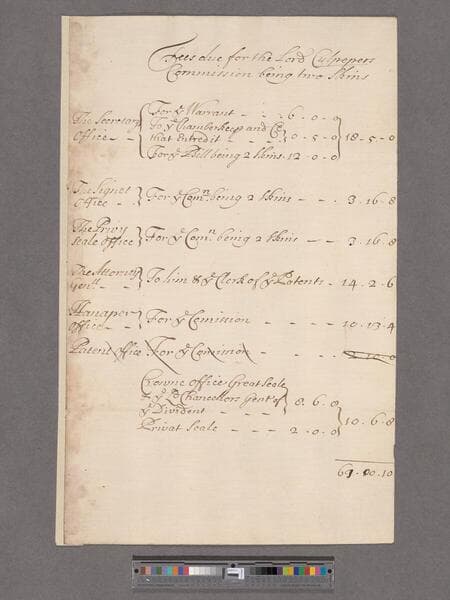 Fees due for the Lord Culpepers
Commission being two skins
The Secretary Office - - For ye Warrant - - 6 - 0 - 0
To ye Chamberkeep and Cl
that Entred it - - 0 - 5 - 0 18 - 5 - 0
For ye Bill being 2 skins 12 - 0 - 0
The Signet
office - - For ye Comn. being 2 skins - - - 3 . 16 . 8
The Privy
Seale office For ye Comn. being 2 skins - - - 3 . 16 . 8
The Attorney
Genll To him & ye Clerk of ye Patents - 14 . 2 . 6
Hanaper
office - - For ye Comission - - - - 10 . 13 . 4
Patent office For ye Commission - - - -
Crowne office Great Seale
& ye Ld Chancellors Gent of 8 . 6 . 8
ye Divident - - - - 10 . 6 . 8
Privat Seale - - - 2 . 0 . 0
61 . 00 . 10